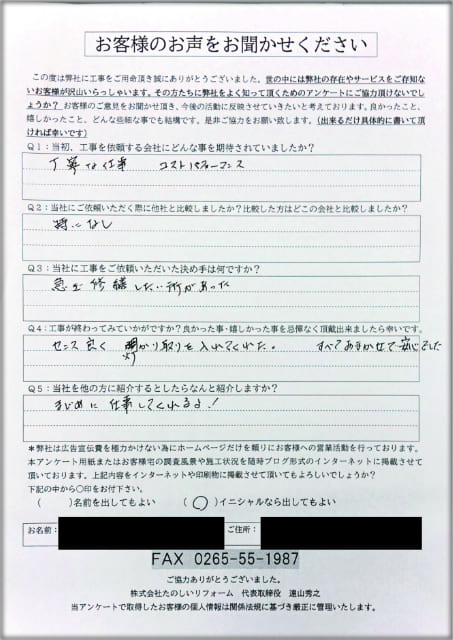 お客様のお声をお聞かせください
この度は弊社に工事をご用命頂き誠にありがとうございました。世の中には弊社の存在やサービスをご存知ない
お客様が沢山いらっしゃいます。その方たちに弊社をよく知って頂くためのアンケートにご協力頂けないで
しょうか？お客様のご意見をお聞かせ頂き、今後の活動に反映させていきたいと考えております。良かったこと、
嬉しかったこと、どんな些細な事でも結構です。是非ご協力をお願い致します。（出来るだけ具体的に書いて頂
ければ幸いです）
Q1：当初、工事を依頼する会社にどんな事を期待されていましたか？
丁寧な仕事　コストパフォーマンス
Q2：当社にご依頼いただく際に他社と比較しましたか？比較した方はどこの会社と比較しましたか？
特になし
Q3：当社に工事をご依頼いただいた決め手は何ですか？
急ぎ修繕したい所があった
Q4：工事が終わってみていかがですか？良かった事・嬉しかった事を忌憚なく頂戴出来ましたら幸いです。
センス良く 明かり取りを入れてくれた。　すべておまかせで安心でした
灯
Q5：当社を他の方に紹介するとしたらなんと紹介しますか？
まじめに仕事してくれるよ！
＊弊社は広告宣伝費を極力かけない為にホームページだけを頼りにお客様への営業活動を行っております。
本アンケート用紙またはお客様宅の調査風景や施工状況を随時ブログ形式のインターネットに掲載させて
頂いております。上記内容をインターネットや印刷物に掲載させて頂いてもよろしいでしょうか？
下記の中から〇印をお付下さい。
（　　）名前を出してもよい　（〇）イニシャルなら出してもよい
お名前：　ご住所：
FAX 0265-55-1987
ご協力ありがとうございました。
株式会社たのしいリフォーム　代表取締役　遠山秀之
当アンケートで取得したお客様の個人情報は関係法規に基づき厳正に管理いたします。